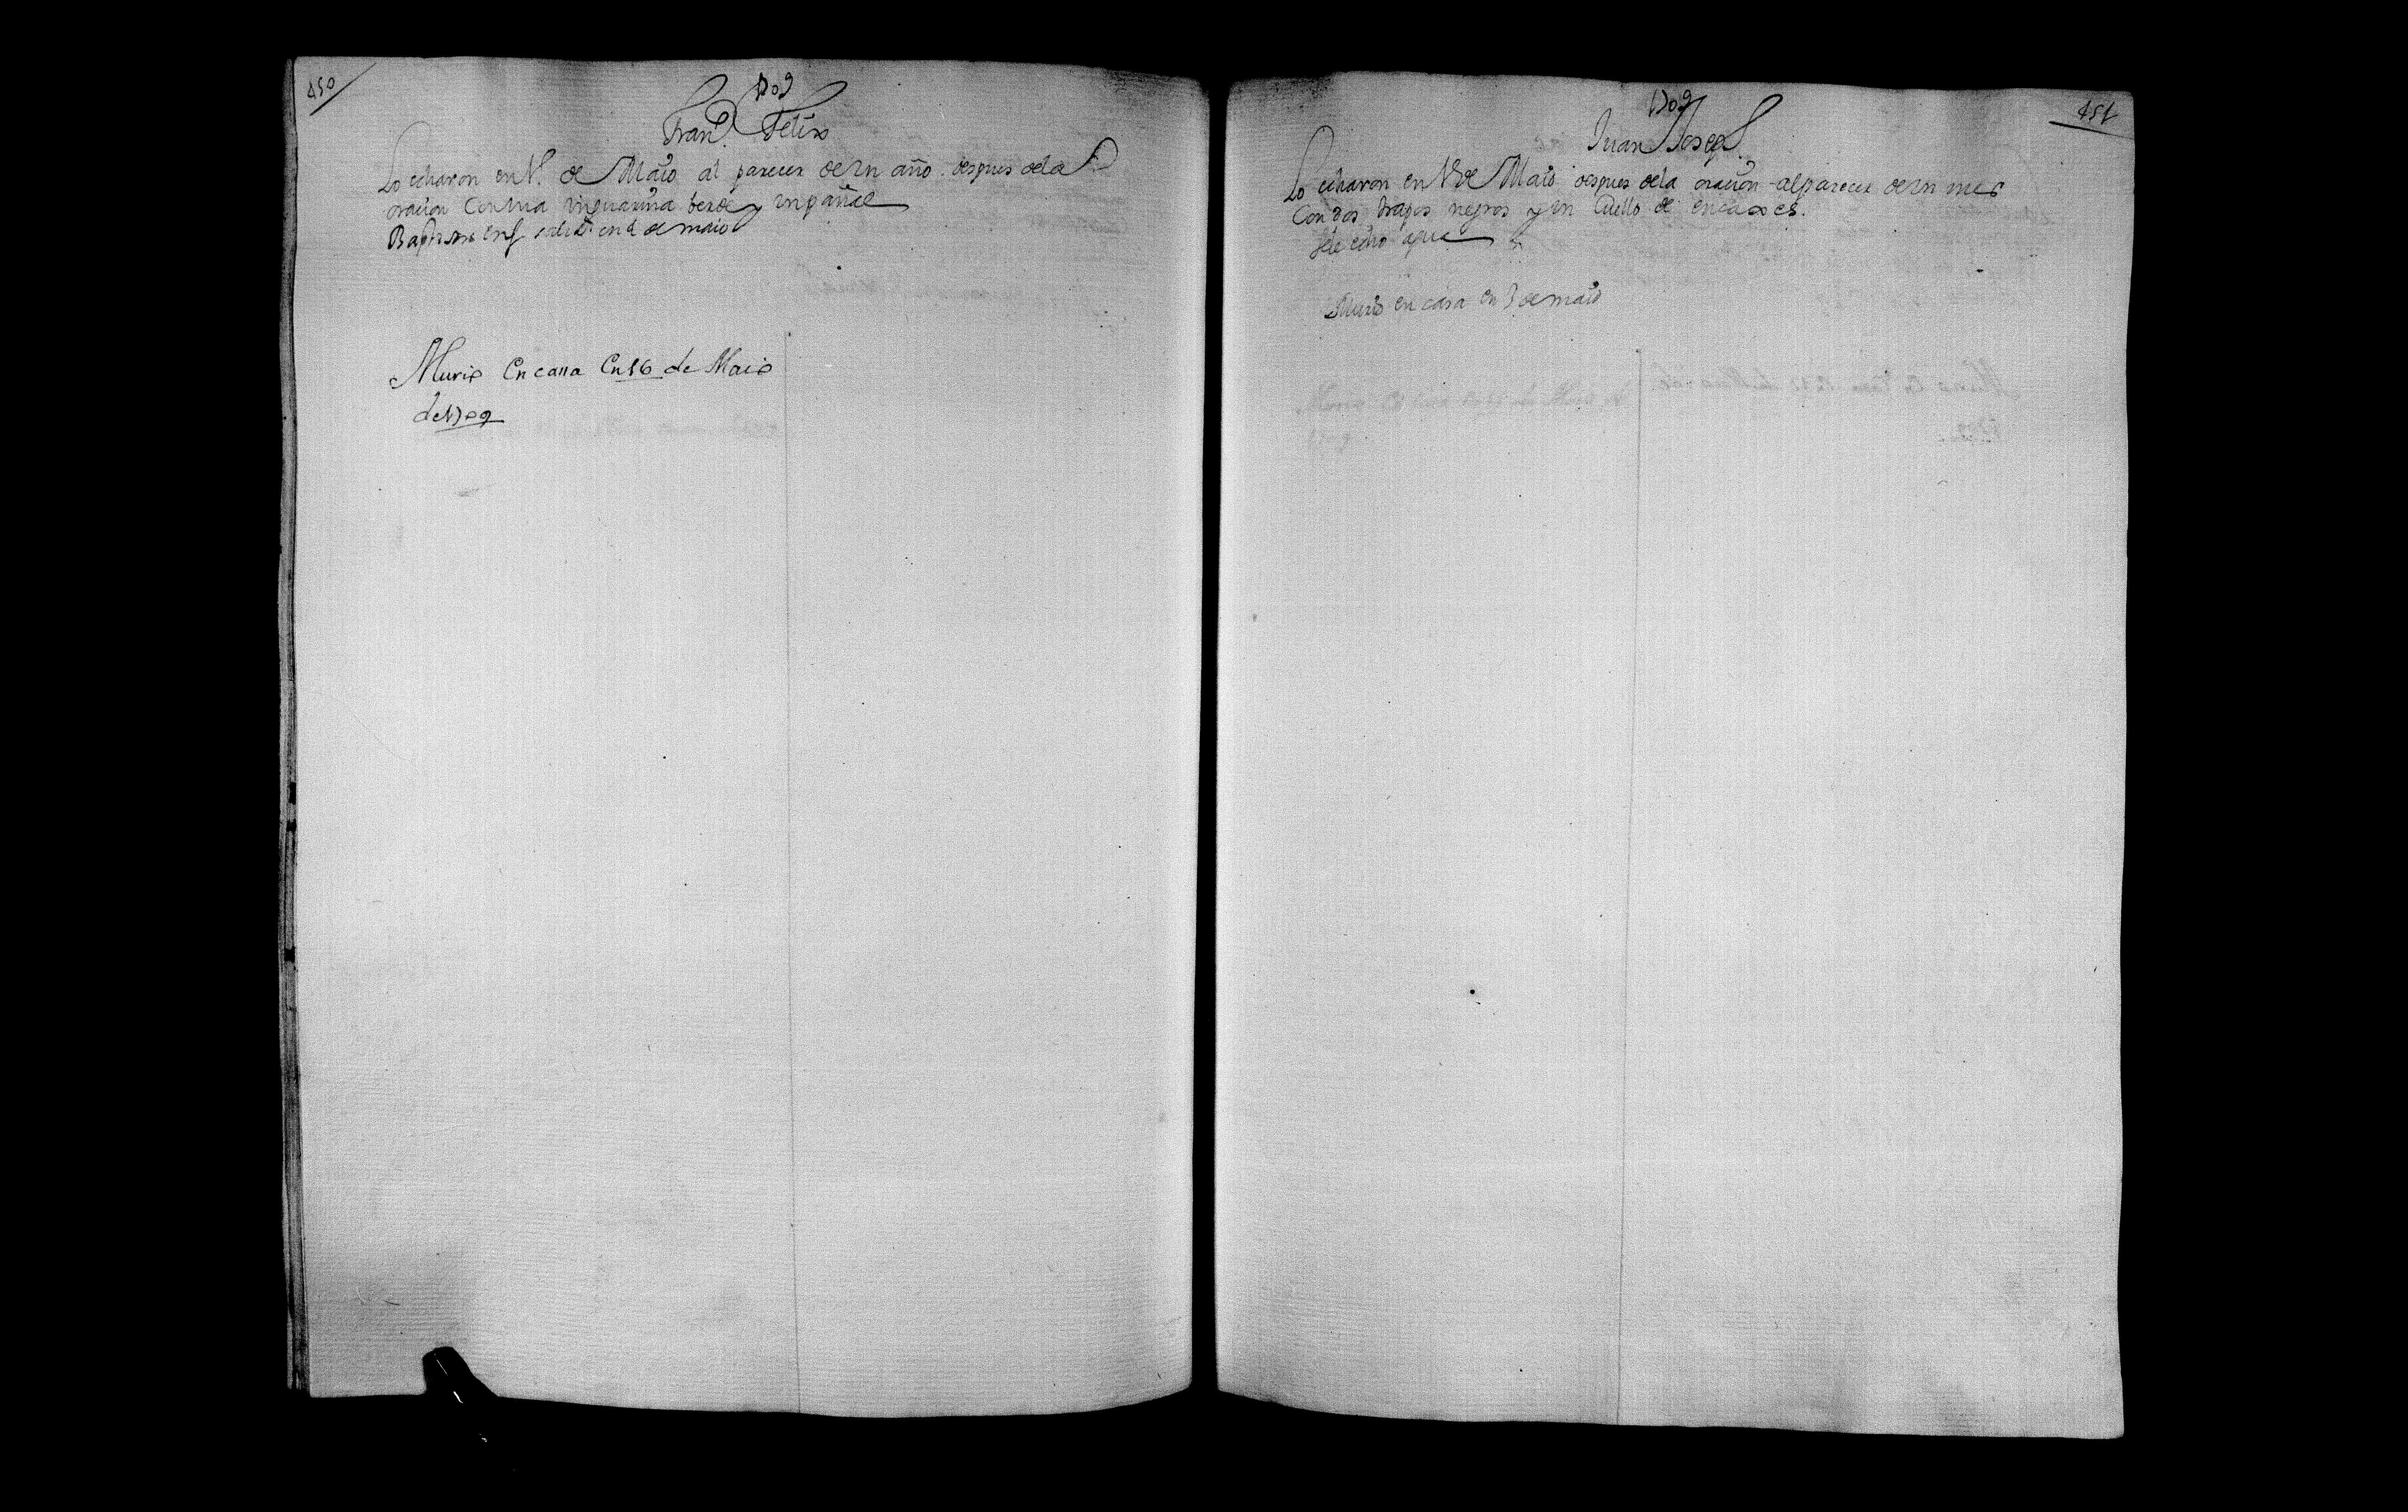 450
1709
Fran.co Felix
Lo echaron en 1. de Maio al parecer de un año. despues de la
oracion Con una anguarina berde y un pañal
Baptisose en en 2 de maio
Murio En casa En 16 de Maio
de 1709
451
1709
Juan Joseph
Lo echaron en 1 de Maio despues de la oracion al parecer de un mes
Con dos trapos negros y un Cuello de encaxes.
se le echo agua
Murio en casa en 3 de maio